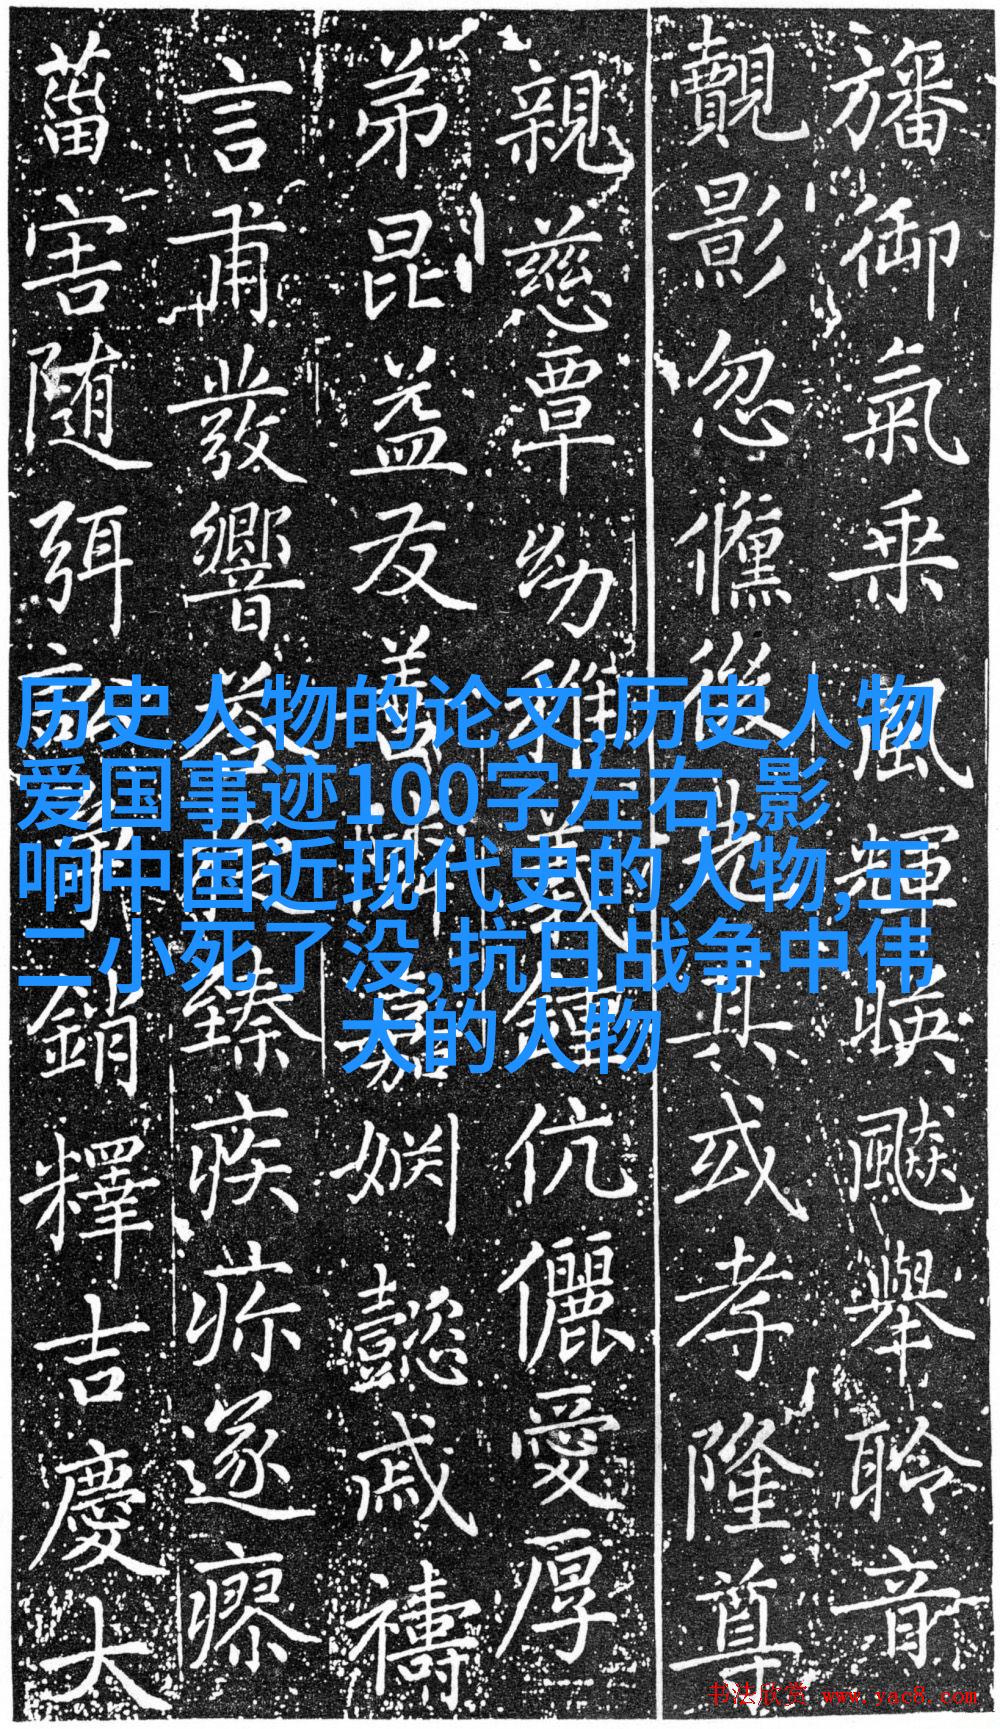 旛御氣乘風輝暎飈舉聆音
覿影忽儵後先其或孝隆尊
親慈覃幼稚義鍾伉儷愛厚
弟昆益友善鄰嘉姻懿戚禱
言甫發響答臻疾疹遂瘳
菑害随弭銷釋吉慶大
历史人物的论文,历史人物
爱国事迹100字左右,影
响中国近现代史的人物,王
二小死了没,抗日战争中伟
大的人物
书法欣赏 www.yac8.com